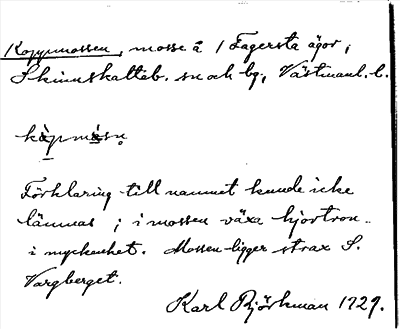 Koppmossen, mosse å 1 Fagersta ägor,
Skinnskatteb. sn och bg, Västmanl. l.
kàpmåsn̥
Förklaring till namnet kunde icke
lämnas; i mossen växa hjortron
i myckenhet. Mossen ligger strax S.
Vargberget.
Karl Björkman 1929.